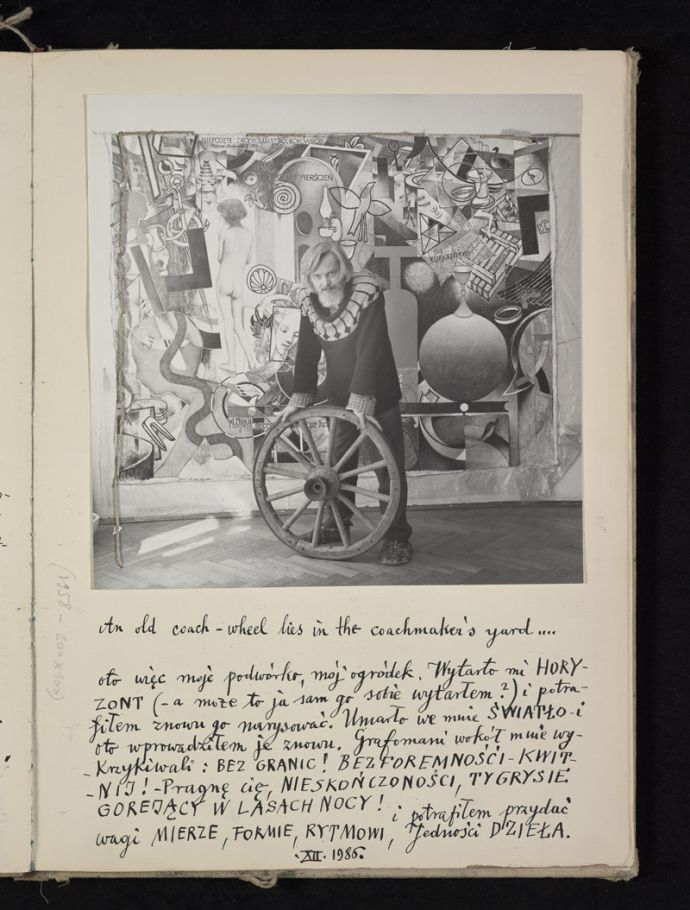 PIERŚCIEŃ
An old coach-wheel lies in the coachmaker's yard....
oto więc moje podwórko, mój ogródek. Wytarto mi HORY-
ZONT (-a może to ja sam go sobie wytarłem?) i potra-
fiłem znowu go narysować. Umarło we mnie ŚWIATŁO-i
oto wprowadziłem je znowu. Grafomani wokół mnie wy-
-krzykiwali: BEZ GRANIC! BEZFOREMNOŚCI-KWIT-
-NIJ!-Pragnę cię, NIESKOŃCZONOŚCI, TYGRYSIE
GOREJĄCY W LASACH NOCY! i potrafiłem przydać
wagi MIERZE, FORMIE, RYTMOWI, Jedności DZIEŁA.
·XII. 1986.